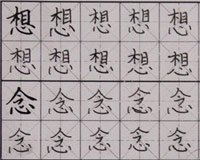 想想想想想
想想想想想
念念念念念
念念念念念